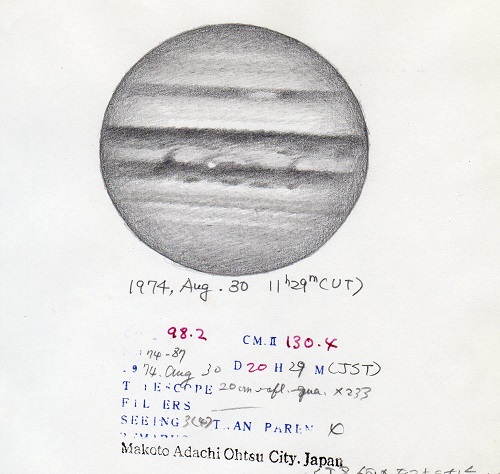 1974, Aug. 30 11h29m (UT)
98.2 CM.II 130.4
74-87
974. Aug 30 D 20 H 29 M (JST)
T LESCOPE 20cm refl. ×233
FIL ERS
SEEING 3 T AN PAREN
Makoto Adachi Ohtsu City. Japan